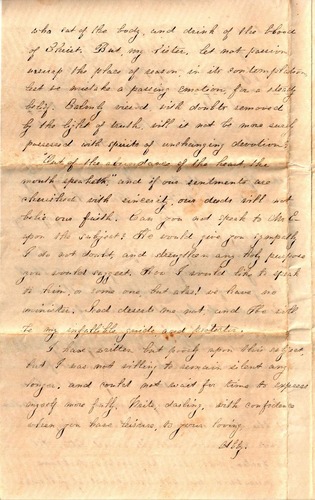 who eat of the body, and drink of the blood
of Christ. But, my Sister, let not passion
usurp the place of reason, in its contemplation
let us mistake a passing emotion, for a steady
belief. Calmly viewed with doubts removed
by the light of truth, will it not be more surely
possessed with spirits of unchanging devotion;
"Out of the abundance of the heart the
mouth speaketh," and if our sentiments are
cherished with sincerity, our deeds will not
belie our faith. Can you not speak to Mr
upon the subject? He would give you sympathy
I do not doubt, and strengthen any holy purpose
you would suggest. How I would like to speak
to him, or some one but alas! we have no
minister. God deserts me not, and He will
be my infallible guide and protector.
I have written but poorly upon this subject,
but I was not willing to remain silent any
longer, and could not wait for time to express
myself more fully. Write, darling, with confidence
when you have leisure, to your loving